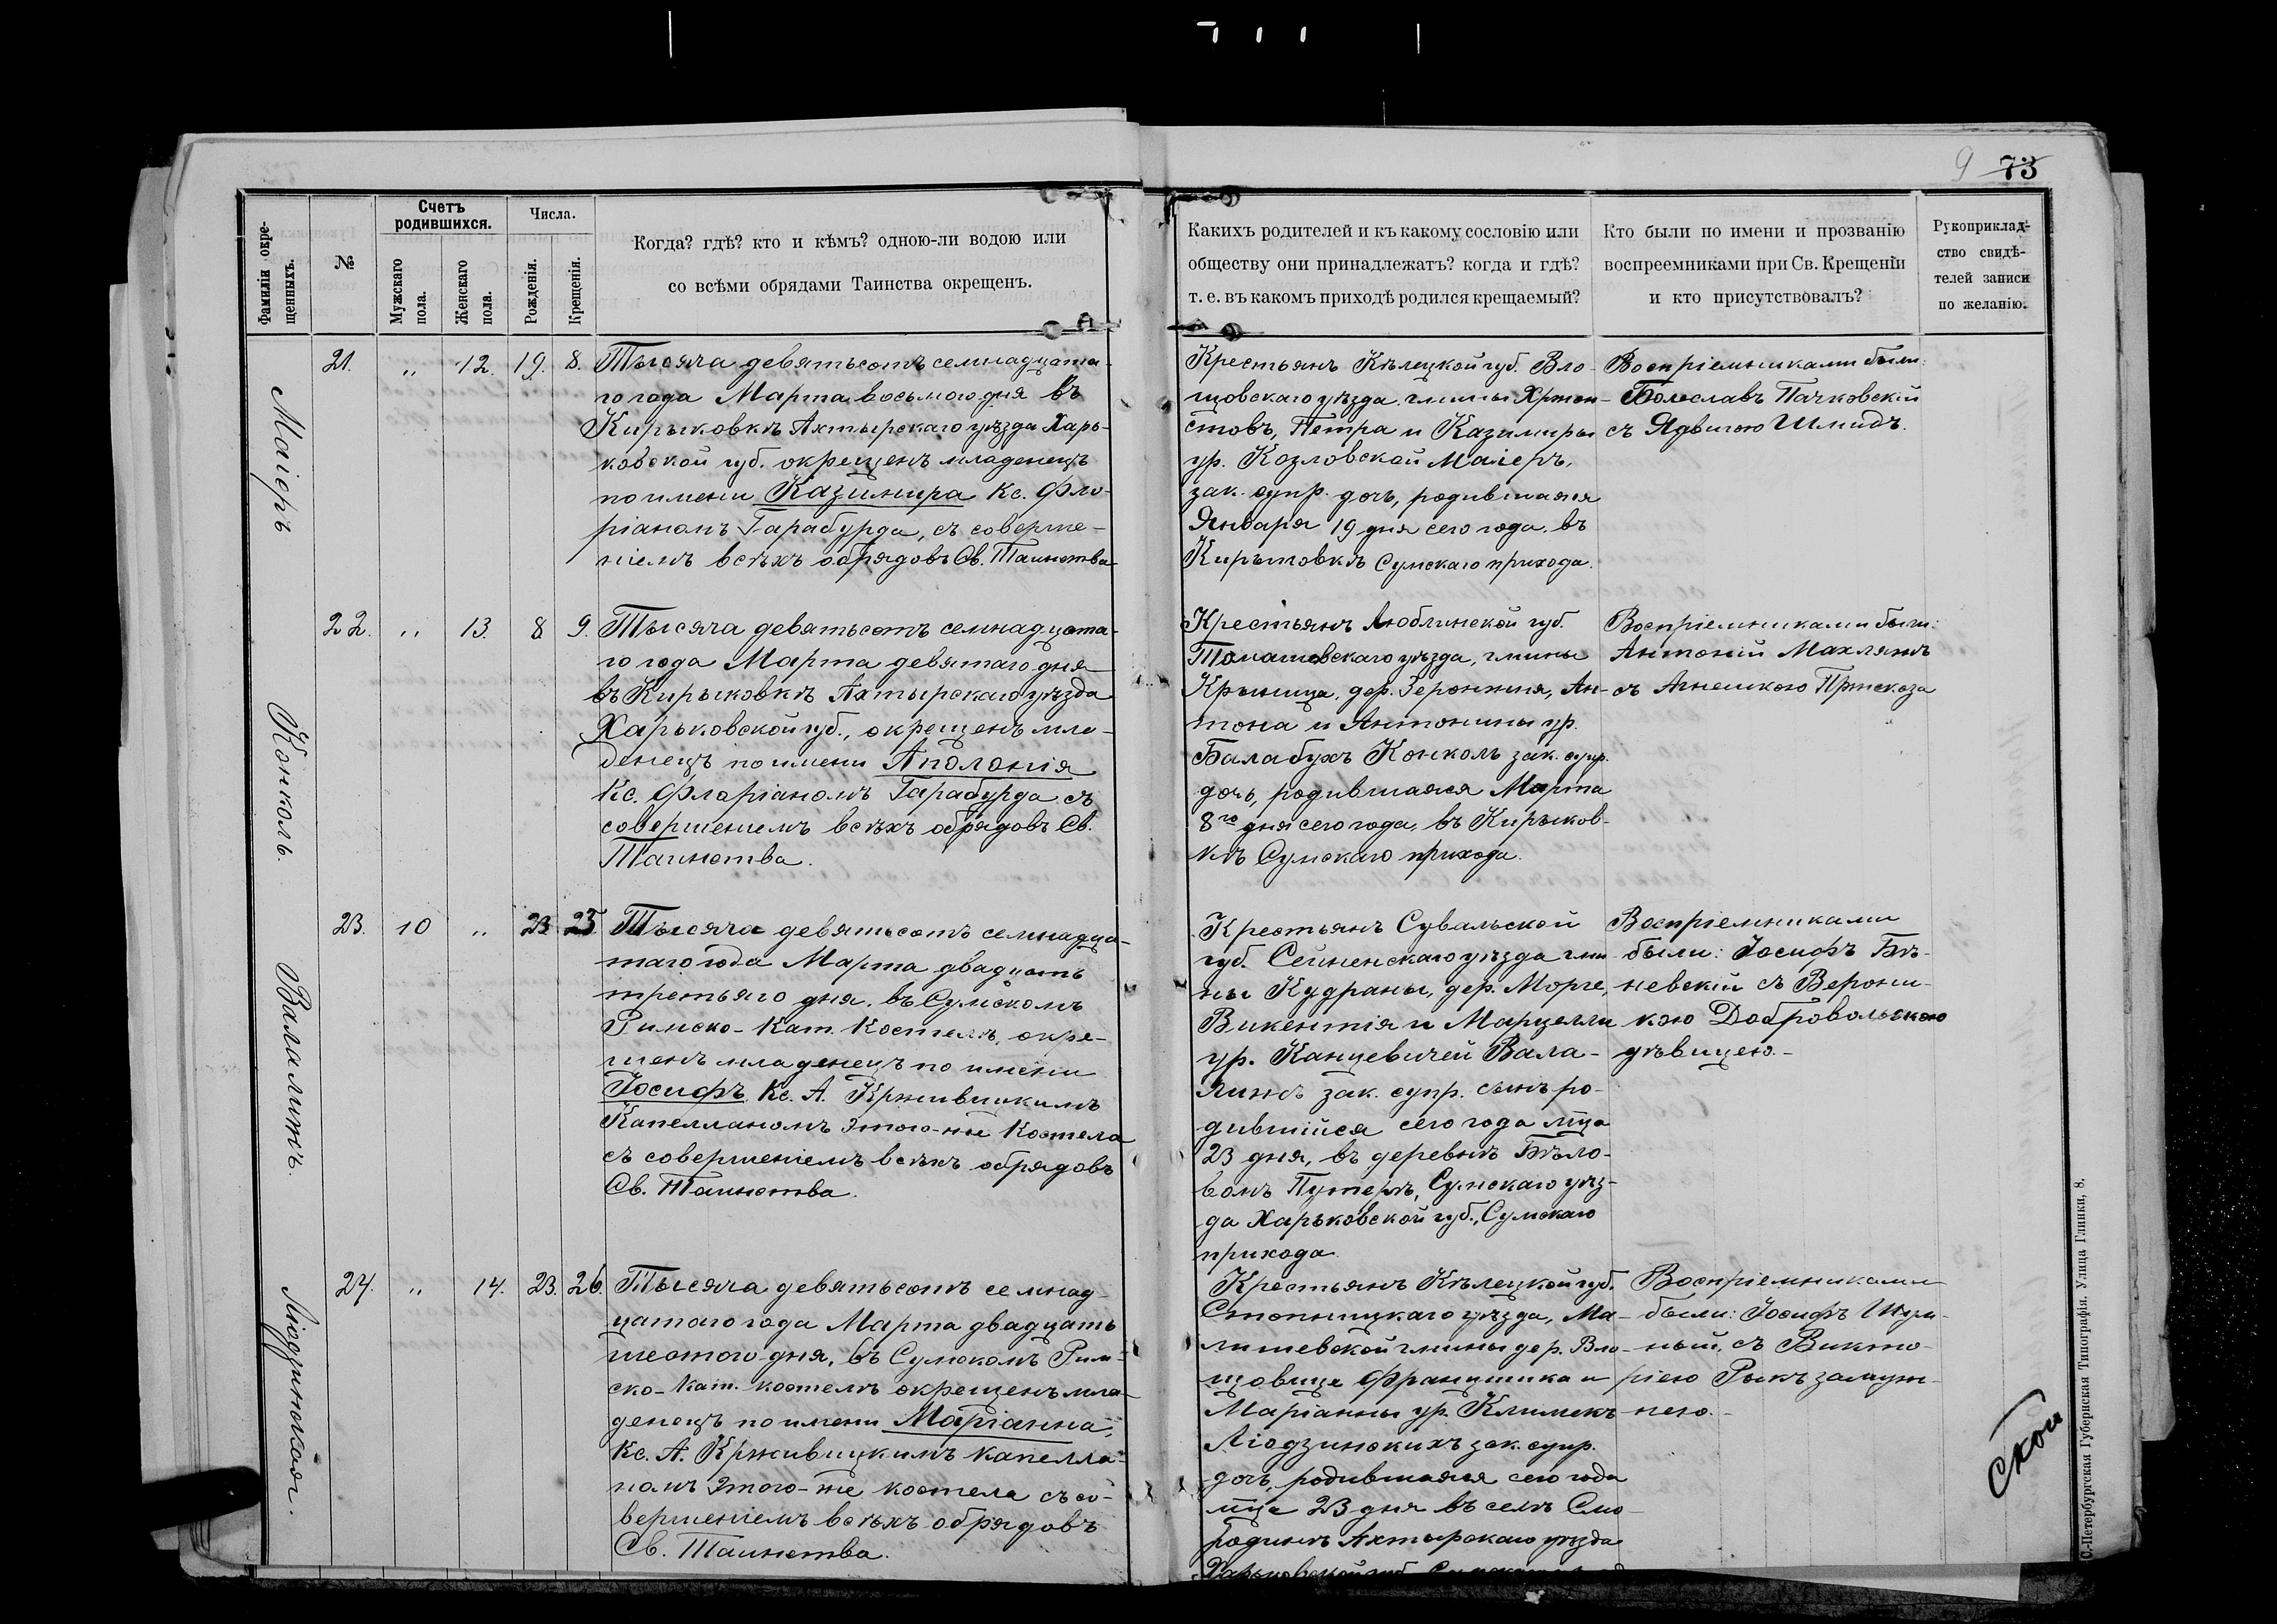 9 73
Фамиліи окре-
щенныхъ.
№
Счетъ
родившихся.
Мужскаго
пола.
Женскаго
пола.
Числа.
Рожденія.
Крещенія.
Когда? гдѣ? кто и кѣмъ? одною-ли водою или
со всѣми обрядами Таинства окрещенъ.
Какихъ родителей и къ какому сословію или
обществу они принадлежатъ? когда и гдѣ?
т. е. въ какомъ приходѣ родился крещаемый?
Кто были по имени и прозванію
воспреемниками при Св. Крещеніи
и кто присутствовалъ?
Рукоприклад-
ство свидѣ-
телей записи
по желанію.
Маіеръ
21. „ 12. 19. 8.
Тысяча девятьсотъ семнадцата-
го года Марта восьмого дня въ
Кирыковкѣ Ахтырскаго уѣзда Харь-
ковской губ. окрещенъ младенецъ
по имени Казимира Кс. Фло-
ріаномъ Гарабурда, съ соверше-
ніемъ всѣхъ обрядовъ Св. Таинства
Крестьянъ Кѣлецкой губ. Вло-
щовскаго уѣзда, гмины Хржон-
стовъ, Петра и Казимиры
ур. Козловской Маіеръ,
зак. супр. дочь, родившаяся
Января 19 дня сего года, въ
Кирыковкѣ Сумскаго прихода.
Воспріемниками были:
Болеславъ Пачковскій
съ Ядвигою Шмидъ.
Конколь.
22. „ 13. 8 9.
Тысяча девятьсотъ семнадцата-
го года Марта девятаго дня
въ Кирыковкѣ Ахтырскаго уѣзда
Харьковской губ., окрещенъ мла-
денецъ по имени Аполонія
Кс. Флоріаномъ Гарабурда съ
совершеніемъ всѣхъ обрядовъ Св.
Таинства.
Крестьянъ Люблинской губ.
Томашевскаго уѣзда, гмины
Крыница, дер. Ан-
тона и Антонины ур.
Балабухъ Конколь зак. супр.
дочь, родившаяся Марта
8го дня сего года, въ Кирыков-
кѣ Сумскаго прихода.
Воспріемниками были:
Антоній Махлянъ
съ Агнешкою
Валалижъ.
23. 10 „ 23 25.
Тысяча девятьсотъ семнадца-
таго года Марта двадцать
третьяго дня, въ Сумскомъ
Римско-Кат. Костелѣ, окре-
щенъ младенецъ по имени
Іосифъ Кс. А. Крживицкимъ
Капелланомъ этого-же Костела
съ совершеніемъ всѣхъ обрядовъ
Св. Таинства.
Крестьянъ Сувальской
губ. Сейненскаго уѣзда гми-
ны Кудраны, дер. Морге,
Викентія и Марцелли
ур. Канцевичей Вала-
лижъ зак. супр. сынъ ро-
дившійся сего года мца
23 дня, въ деревнѣ Бѣло-
вомъ Сумскаго уѣз-
да Харьковской губ., Сумскаго
прихода.
Воспріемниками
были: Іосифъ Бѣ-
невскій съ Верони-
кою Добровольскою
дѣвицею.-
Людзинская.
24. „ 14. 23. 26.
Тысяча девятьсотъ семнад-
цатаго года Марта двадцать
шестого дня, въ Сумскомъ Рим-
ско-Кат. костелѣ окрещенъ мла-
денецъ по имени Маріанна,
Кс. А. Крживицкимъ капелла-
номъ этого-же костела съ со-
вершеніемъ всѣхъ обрядовъ
Св. Таинства.
Крестьянъ Кѣлецкой губ.
Стопницкаго уѣзда, Ма-
лишевской гмины дер. Вло-
щовице Францишка и
Маріанны ур. Климекъ
Людзинскихъ зак. супр.
дочь, родившаяся сего года
мца 23 дня въ селѣ Смо-
родинѣ Ахтырскаго уѣзда
Харьковской губ.
Воспріемниками
были: Іосифъ Шум-
ный, съ Викто-
ріею Рыкъ замуж-
нею.-
ской
С.-Петербургская Губернская Типографія. Улица Глинки, 8.